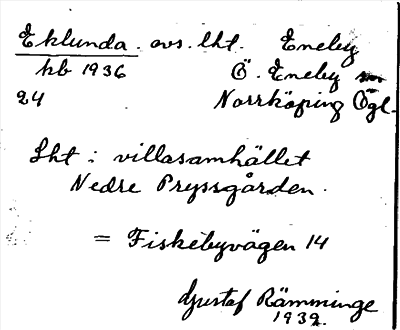 Eklunda. avs. lht. Eneby
kb 1936 Ö. Eneby sn
24 Norrköping Ögl.
Lht : villasamhället
Nedre Pryssgården.
= Fiskebyvägen 14
Gustaf Rämminge
1939.